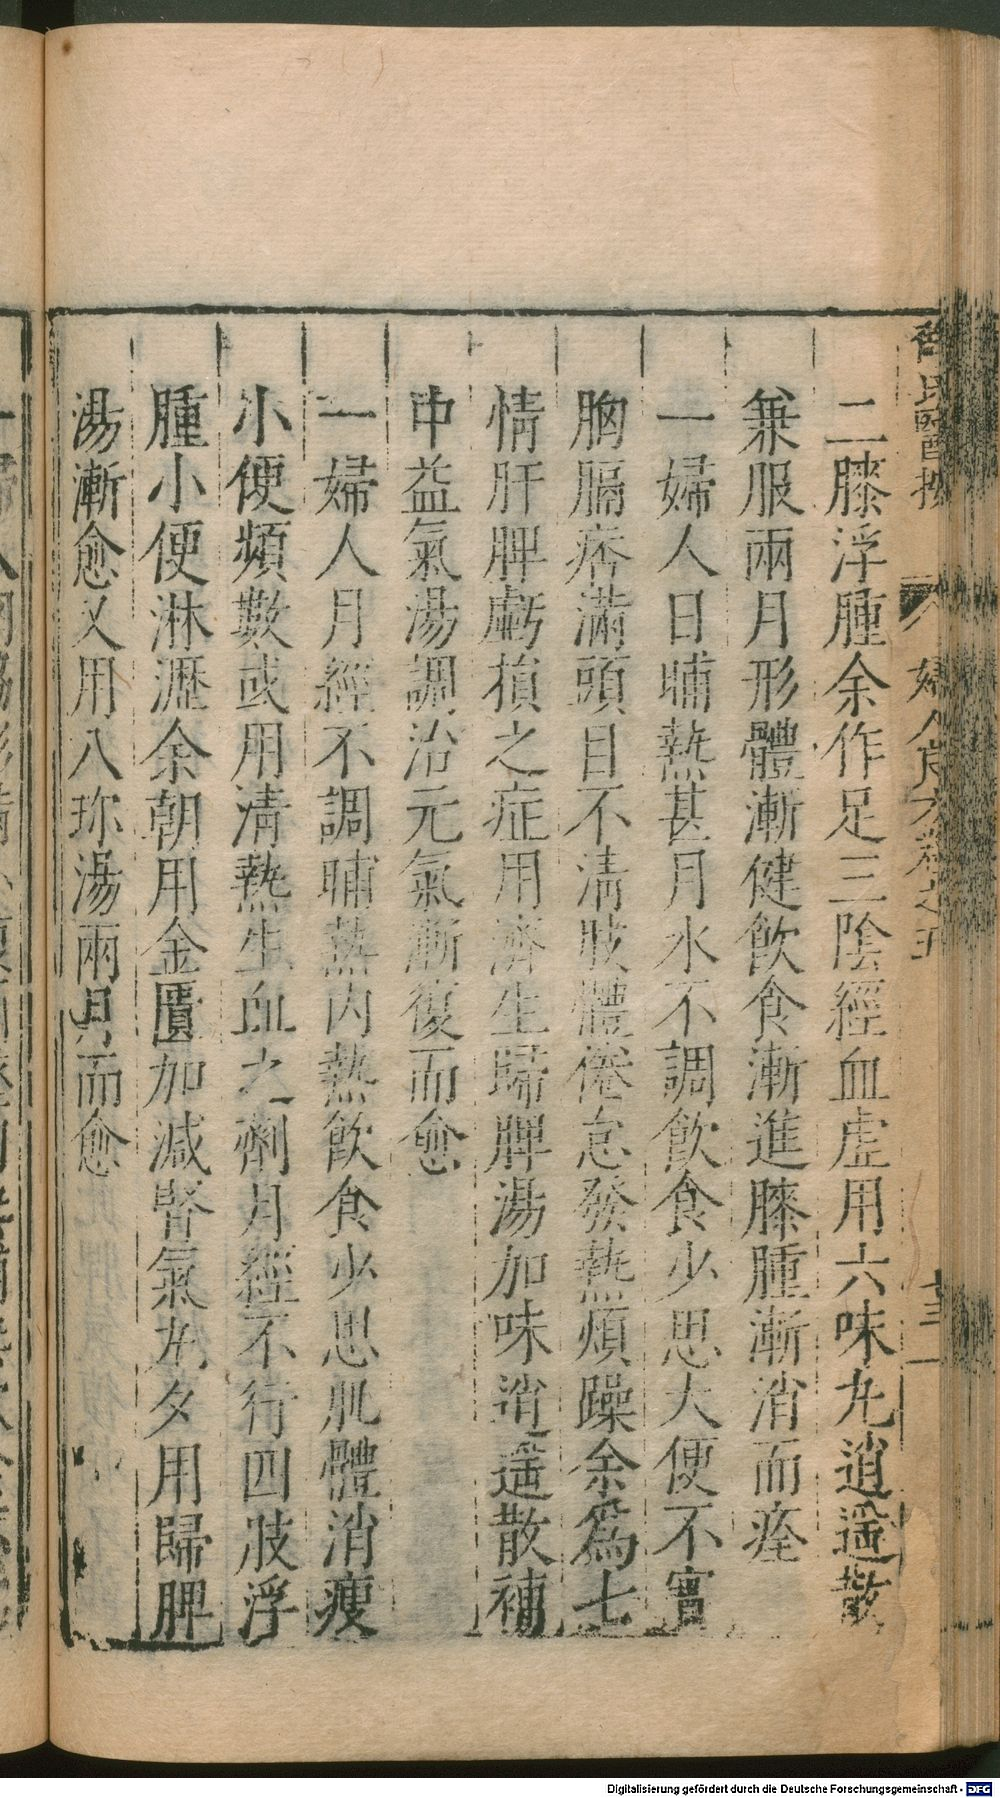 二膝浮腫余作足三陰經血虛用六味丸逍遥散
兼服兩月形體漸健飲食漸進膝腫漸消而痊
一婦人日晡熱甚月水不調飲食少思大便不實
胸膈痞滿頭目不清肢體倦怠發熱煩躁余爲七
情肝脾虧損之症用濟生歸脾湯加味逍遥散補
中益氣湯調治元氣漸復而愈
一婦人月經不調晡熱内熱飲食少思肌體消瘦
小便頻數或用清熱生血之劑月經不行四肢浮
腫小便淋瀝余朝用金匱加减腎氣丸夕用歸脾
湯漸愈又用八珎湯兩月而愈
氏醫按 婦人良方卷之五
Digitalisierung gefördert durch die Deutsche Forschungsgemeinschaft - DFG